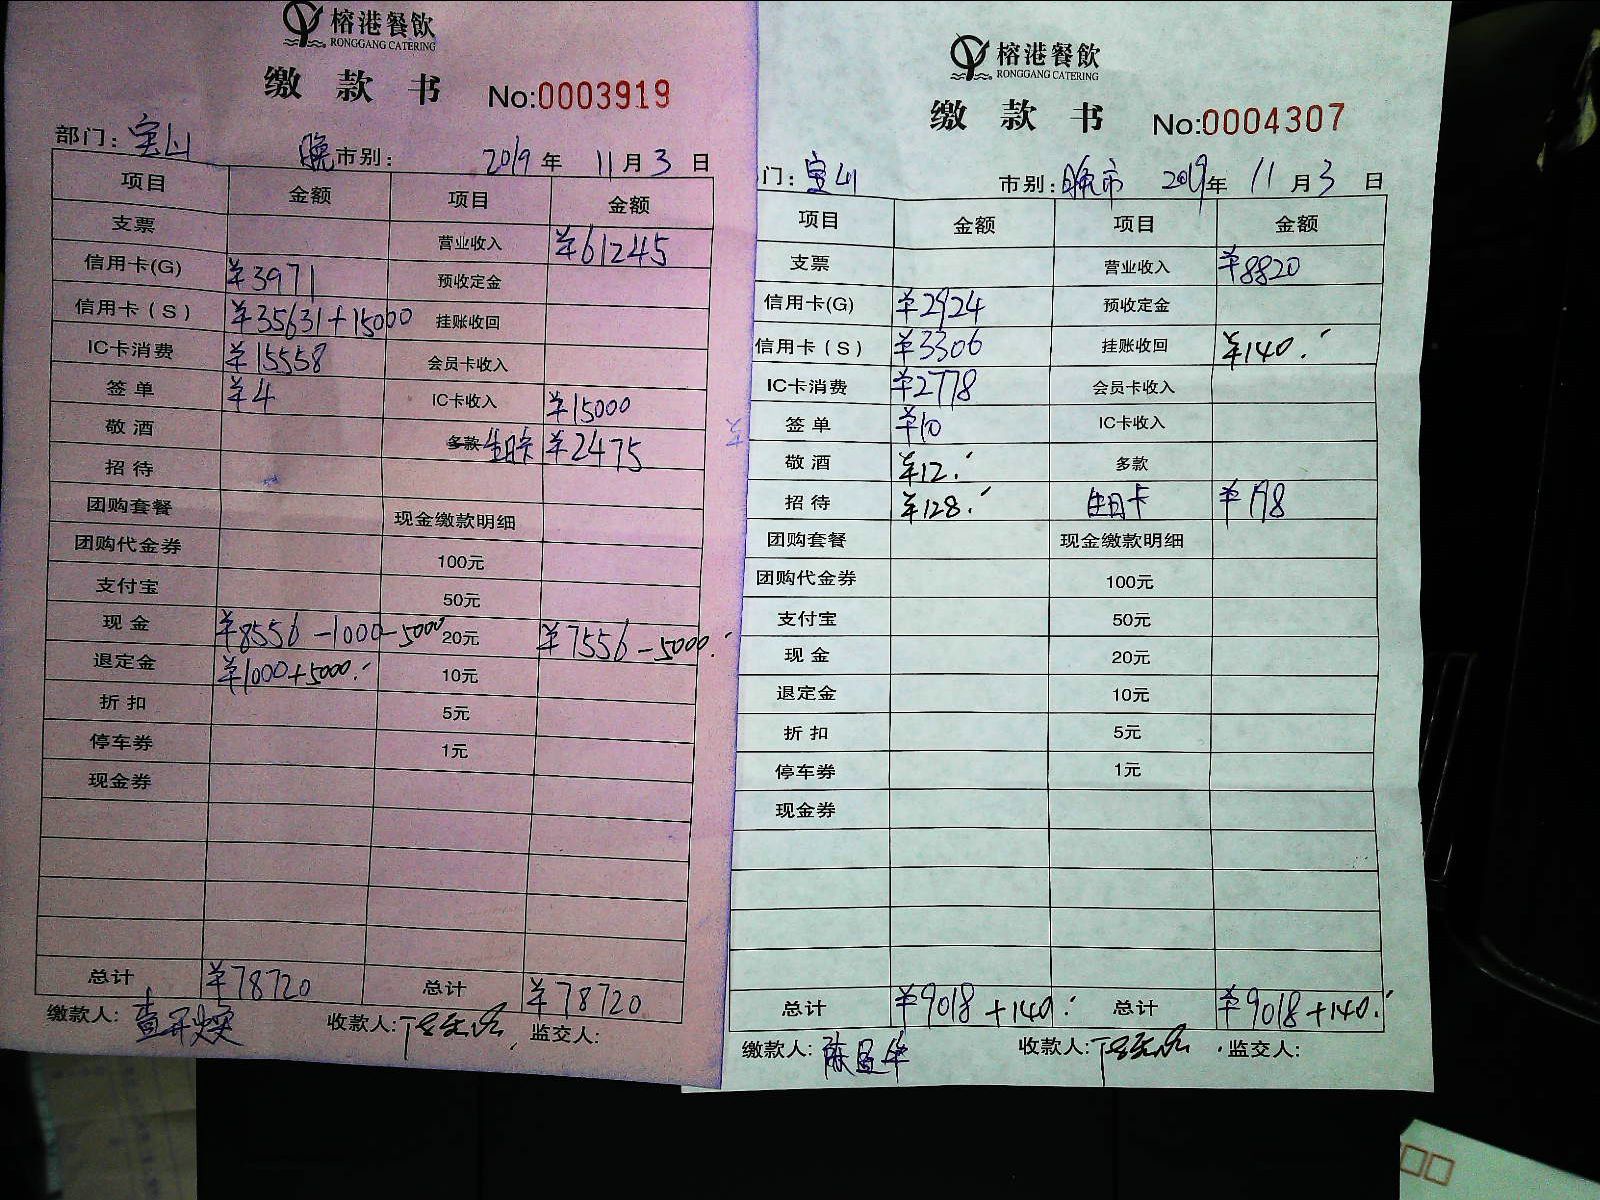 榕港餐飲
RONGGANG CATERING
缴款书 No:0003919
部门：宝山 晚市别： 2019年 11月3日
项目 金额 项目 金额
支票 营业收入 ¥61245
信用卡(G) ¥3971 预收定金
信用卡（S） ¥35631+15000 挂账收回
IC卡消费 ¥15558 会员卡收入
签单 ¥4 IC卡收入 ¥15000
敬酒 多款 生日卡 ¥2475
招待
团购套餐 现金缴款明细
团购代金券 100元
支付宝 50元
现金 ¥8556-1000-5000 20元 ¥7556-5000.
退定金 ¥1000+5000. 10元
折扣 5元
停车券 1元
现金券
总计 ¥78720 总计 ¥78720
缴款人： 收款人： 监交人：
榕港餐飲
RONGGANG CATERING
缴款书 No:0004307
门：宝山 市别：晚市 2019年 11月3日
项目 金额 项目 金额
支票 营业收入 ¥8820
信用卡(G) ¥2924 预收定金
信用卡（S） ¥3306 挂账收回 ¥140.
IC卡消费 ¥2778 会员卡收入
签单 ¥10 IC卡收入
敬酒 ¥12. 多款
招待 ¥128. 生日卡 ¥198
团购套餐 现金缴款明细
团购代金券 100元
支付宝 50元
现金 20元
退定金 10元
折扣 5元
停车券 1元
现金券
总计 ¥9018+140. 总计 ¥9018+140.
缴款人： 收款人： 监交人：